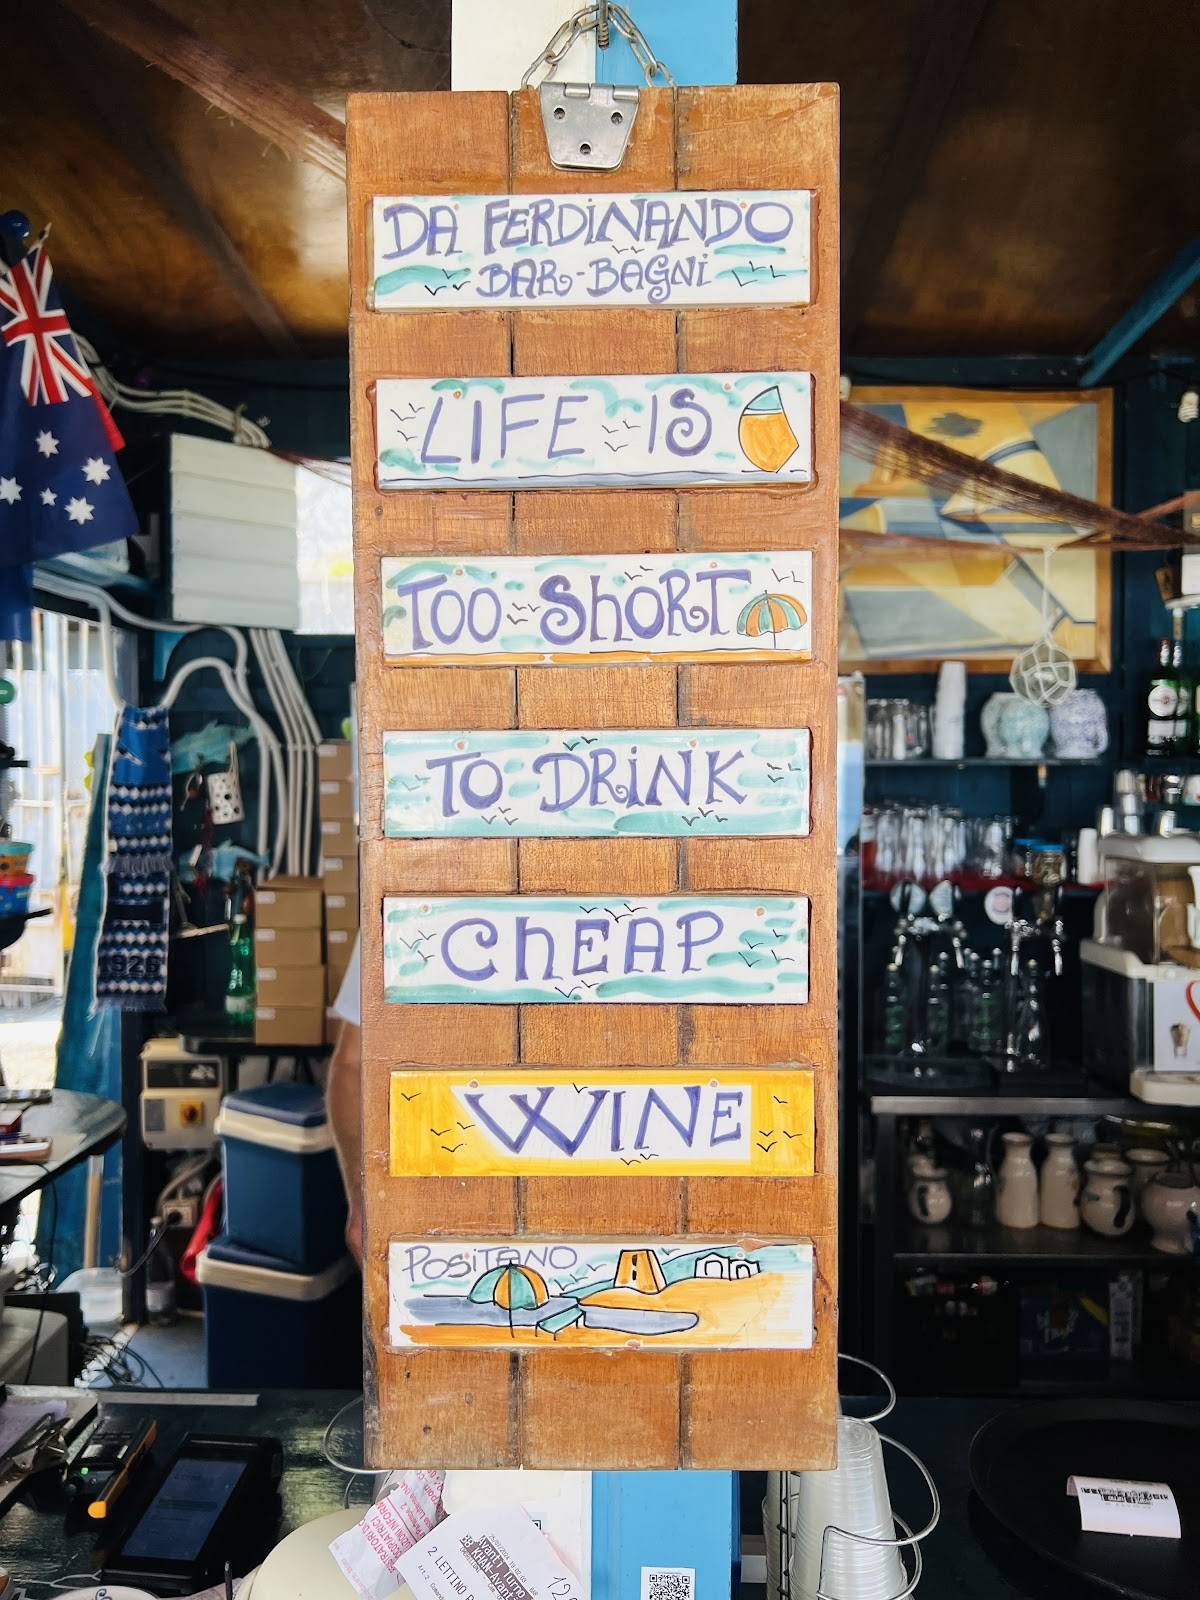 DA FERDiNANDO
BAR-BAGNi
LIFE IS
TOO ShORT
TO DRiNK
ChEAP
WINE
POSiTANO
1926
2 LETTINO
Avanti Turno